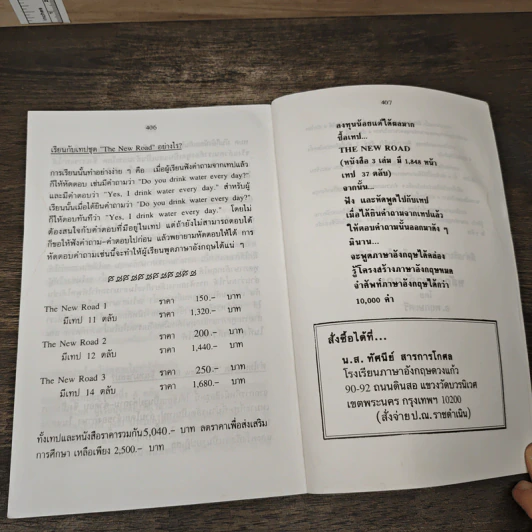 406
เรียนกับเทปชุด "The New Road" อย่างไร?
การเรียนนั้นทำอย่างง่าย ๆ คือ เมื่อผู้เรียนฟังคำถามจากเทปแล้ว
ก็ให้หัดตอบ เช่นมีคำถามว่า "Do you drink water every day?"
และมีคำตอบว่า "Yes, I drink water every day." สำหรับผู้
เรียนนั้นเมื่อได้ยินคำถามว่า "Do you drink water every day?"
ก็ให้ตอบทันทีว่า "Yes, I drink water every day." โดยไม่
ต้องสนใจกับคำตอบที่มีอยู่ในเทป แต่ถ้ายังไม่สามารถตอบได้
ก็ขอให้ฟังคำถาม-คำตอบไปก่อน แล้วพยายามหัดตอบให้ได้ การ
หัดตอบคำถามเช่นนี้จะทำให้ผู้เรียนพูดภาษาอังกฤษได้แน่ ๆ
The New Road 1 ราคา 150.- บาท
มีเทป 11 ตลับ ราคา 1,320.- บาท
The New Road 2 ราคา 200.- บาท
มีเทป 12 ตลับ ราคา 1,440.- บาท
The New Road 3 ราคา 250.- บาท
มีเทป 14 ตลับ ราคา 1,680.- บาท
ทั้งเทปและหนังสือราคารวมกัน 5,040.- บาท ลดราคาเพื่อส่งเสริม
การศึกษา เหลือเพียง 2,500.- บาท
407
ลงทุนน้อยแต่ได้ผลมาก
ซื้อเทป...
THE NEW ROAD
(หนังสือ 3 เล่ม มี 1,848 หน้า
เทป 37 ตลับ)
จากนั้น...
ฟัง และหัดพูดไปกับเทป
เมื่อได้ยินคำถามจากเทปแล้ว
ให้ตอบคำถามนั้นออกมาดัง ๆ
มินาน...
จะพูดภาษาอังกฤษได้คล่อง
รู้โครงสร้างภาษาอังกฤษหมด
จำศัพท์ภาษาอังกฤษได้กว่า
10,000 คำ
สั่งซื้อได้ที่...
น.ส. ทัศนีย์ สารการโกศล
โรงเรียนภาษาอังกฤษดวงแก้ว
90-92 ถนนดินสอ แขวงวัดบวรนิเวศ
เขตพระนคร กรุงเทพฯ 10200
(สั่งจ่าย ป.ณ. ราชดำเนิน)